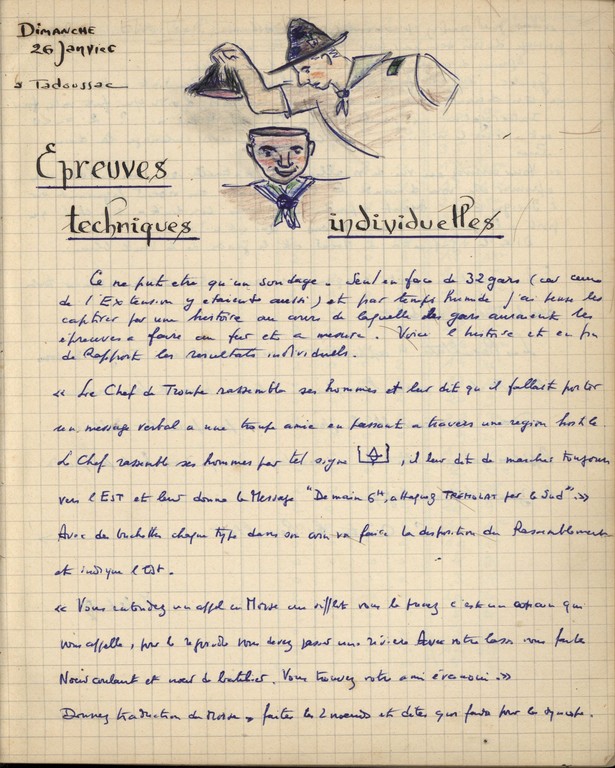 Dimanche
26 Janvier
à Tadoussac
Epreuves
techniques individuelles
Ce ne put etre qu'un sondage. Seul en face de 32 gars (car ceux
de l'Extension y etaient aussi) et par temps humide j'ai pensé les
captiver par une histoire au cours de laquelle des gars auraient les
épreuves a faire au fur et a mesure. Voici l'histoire et en fin
de Rapport les resultats individuels.
« Le Chef de Troupe rassemble ses hommes et leur dit qu il fallait porter
un message verbal a une troupe amie en passant a travers une region hostile.
Le Chef rassemble ses hommes par tel signe , il leur dit de marcher toujours
vers l'EST et leur donne le Message "Demain 6H, attaquez TREMOLAT par le Sud". »
Avec des buchettes chaque type dans son coin va faire la disposition du Rassemblement
et indique l'Est.
« Vous entendez un appel en Morse au sifflet vous le c'est un qui
vous appelle, pour le rejoindre vous devez passer une rivière Avec votre lasso vous faites
Noeud coulant et noeud de batelier. Vous trouvez votre ami évanoui. »
Donnez traduction du Morse, faites les 2 noeuds et dites quoi faire pour la syncope.